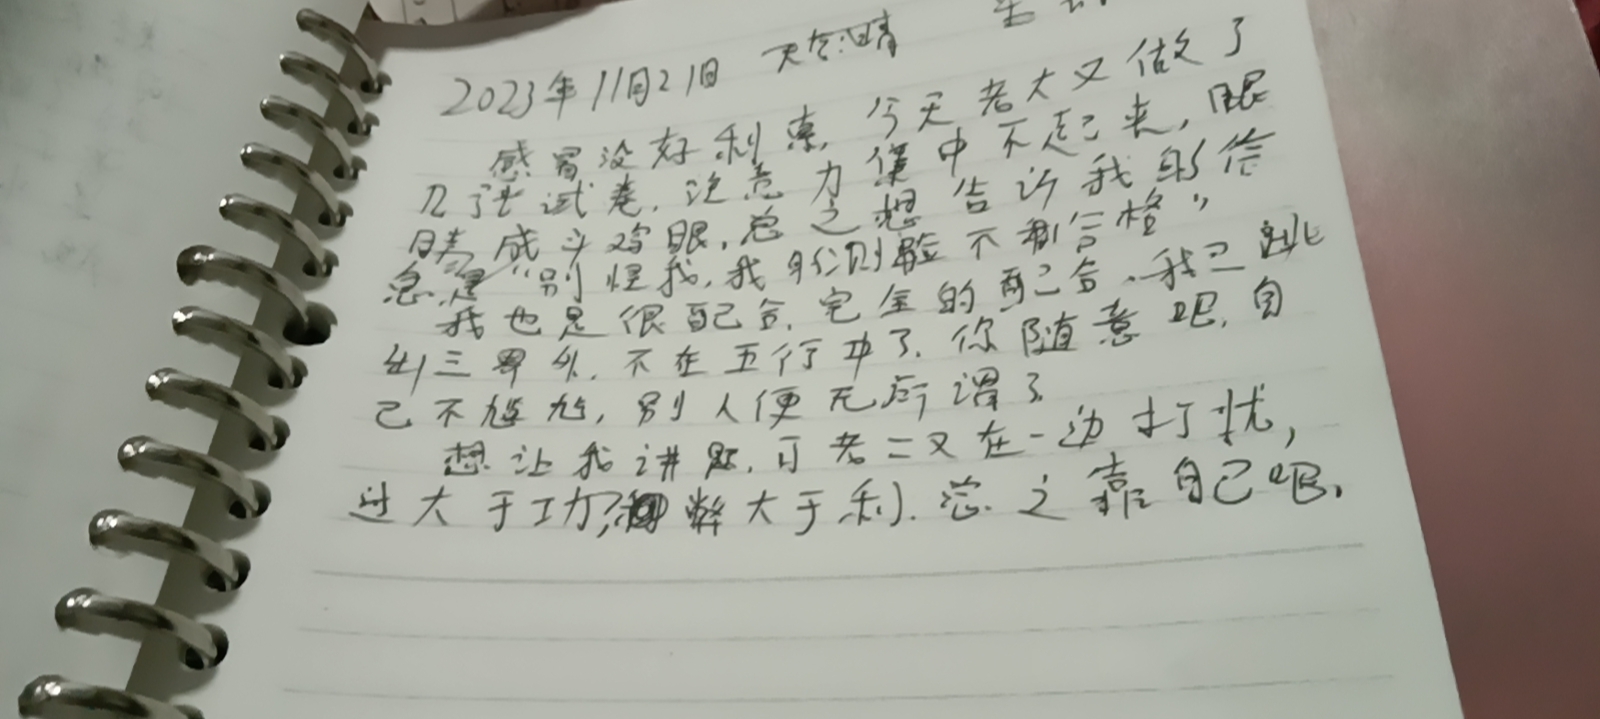 2023年11月21日 天气:晴
感冒没好利索,今天老大又做了
几张试卷,注意力集中不起来,眼
睛成斗鸡眼,总之想告诉我的信
息是“别怪我,我测验不合格”
我也是很配合,完全的配合,我已跳
出三界外,不在五行中了,你随意吧,自
己不尴尬,别人便无所谓了
想让我讲题,可老二又在一边打扰,
过大于功,弊大于利,总之靠自己吧,